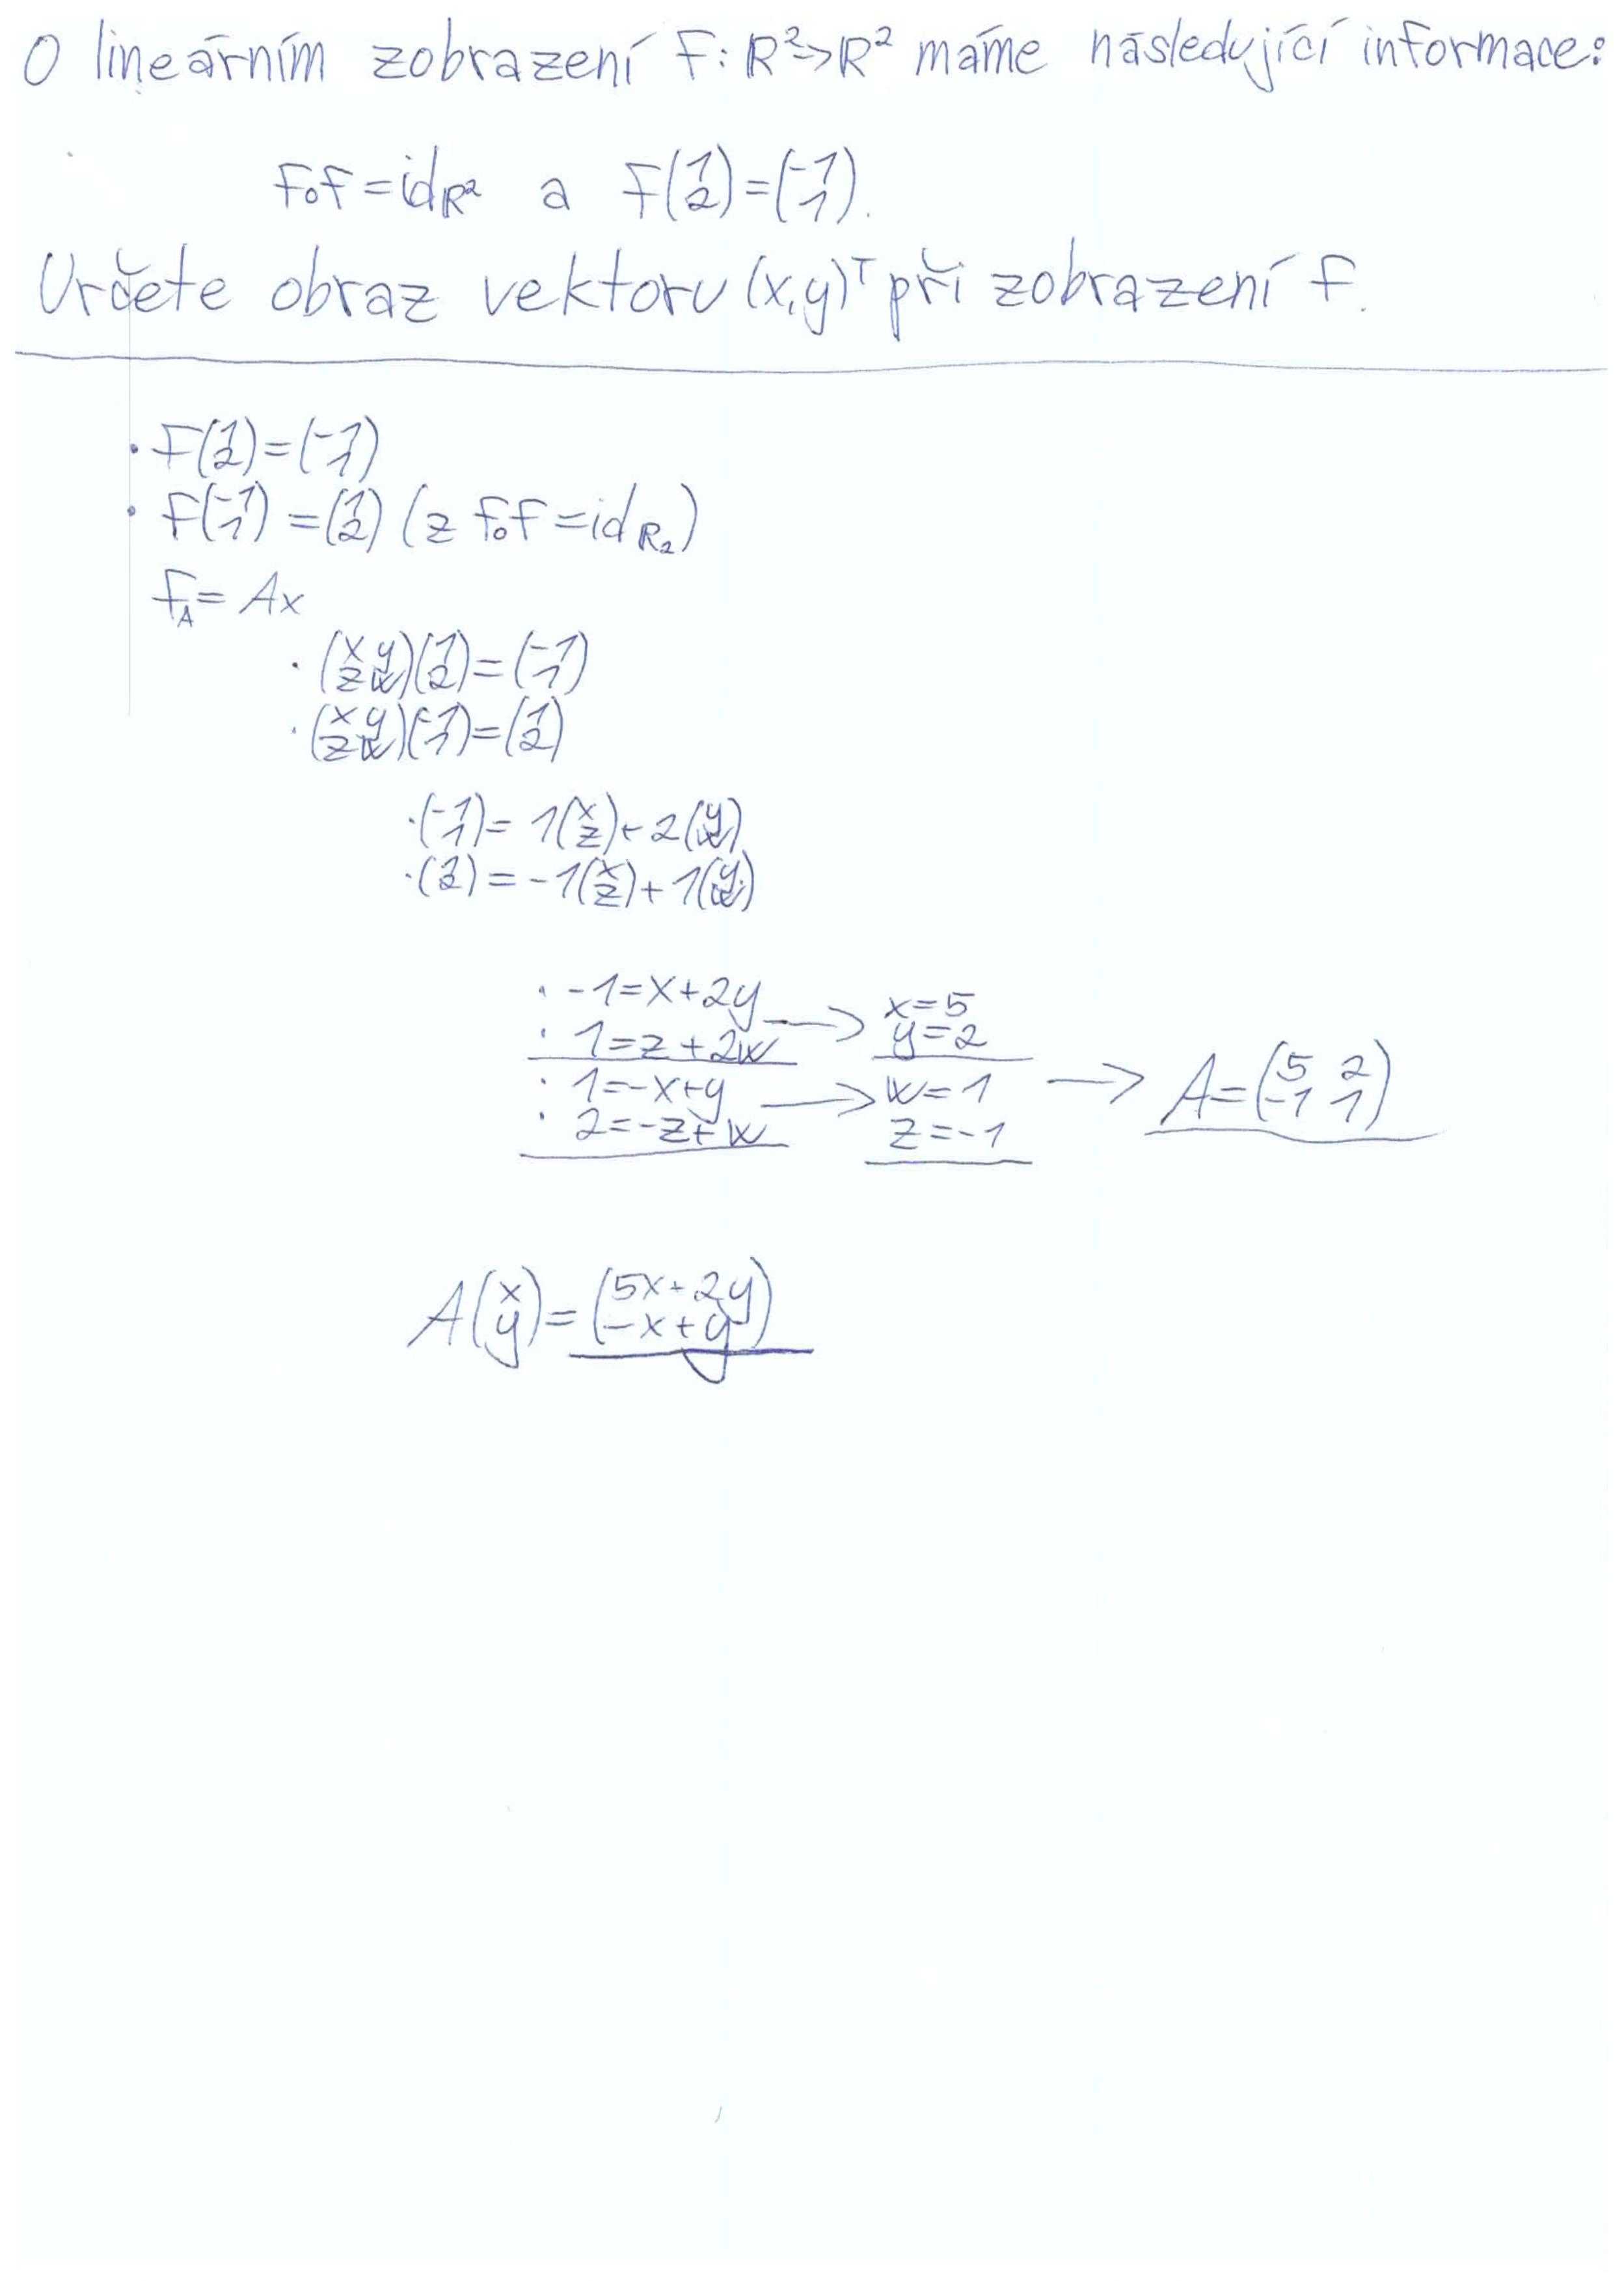 O lineárním zobrazení F: ℝ²→ℝ² máme následující informace:
F∘F = id_ℝ² a F(1 2) = (-1 1).
Určete obraz vektoru (x,y)ᵀ při zobrazení F.
· F(1 2) = (-1 1)
· F(-1 1) = (1 2) (z F∘F = id_ℝ₂)
F_A = Ax
· (x y z w)(1 2) = (-1 1)
· (x y z w)(-1 1) = (1 2)
· (-1 1) = 1(x z) + 2(y w)
· (1 2) = -1(x z) + 1(y w)
· -1 = x + 2y → x = 5
· 1 = z + 2w y = 2
· 1 = -x + y → w = 1 → A = (5 2 -1 1)
· 2 = -z + w z = -1
A(x y) = (5x + 2y -x + y)